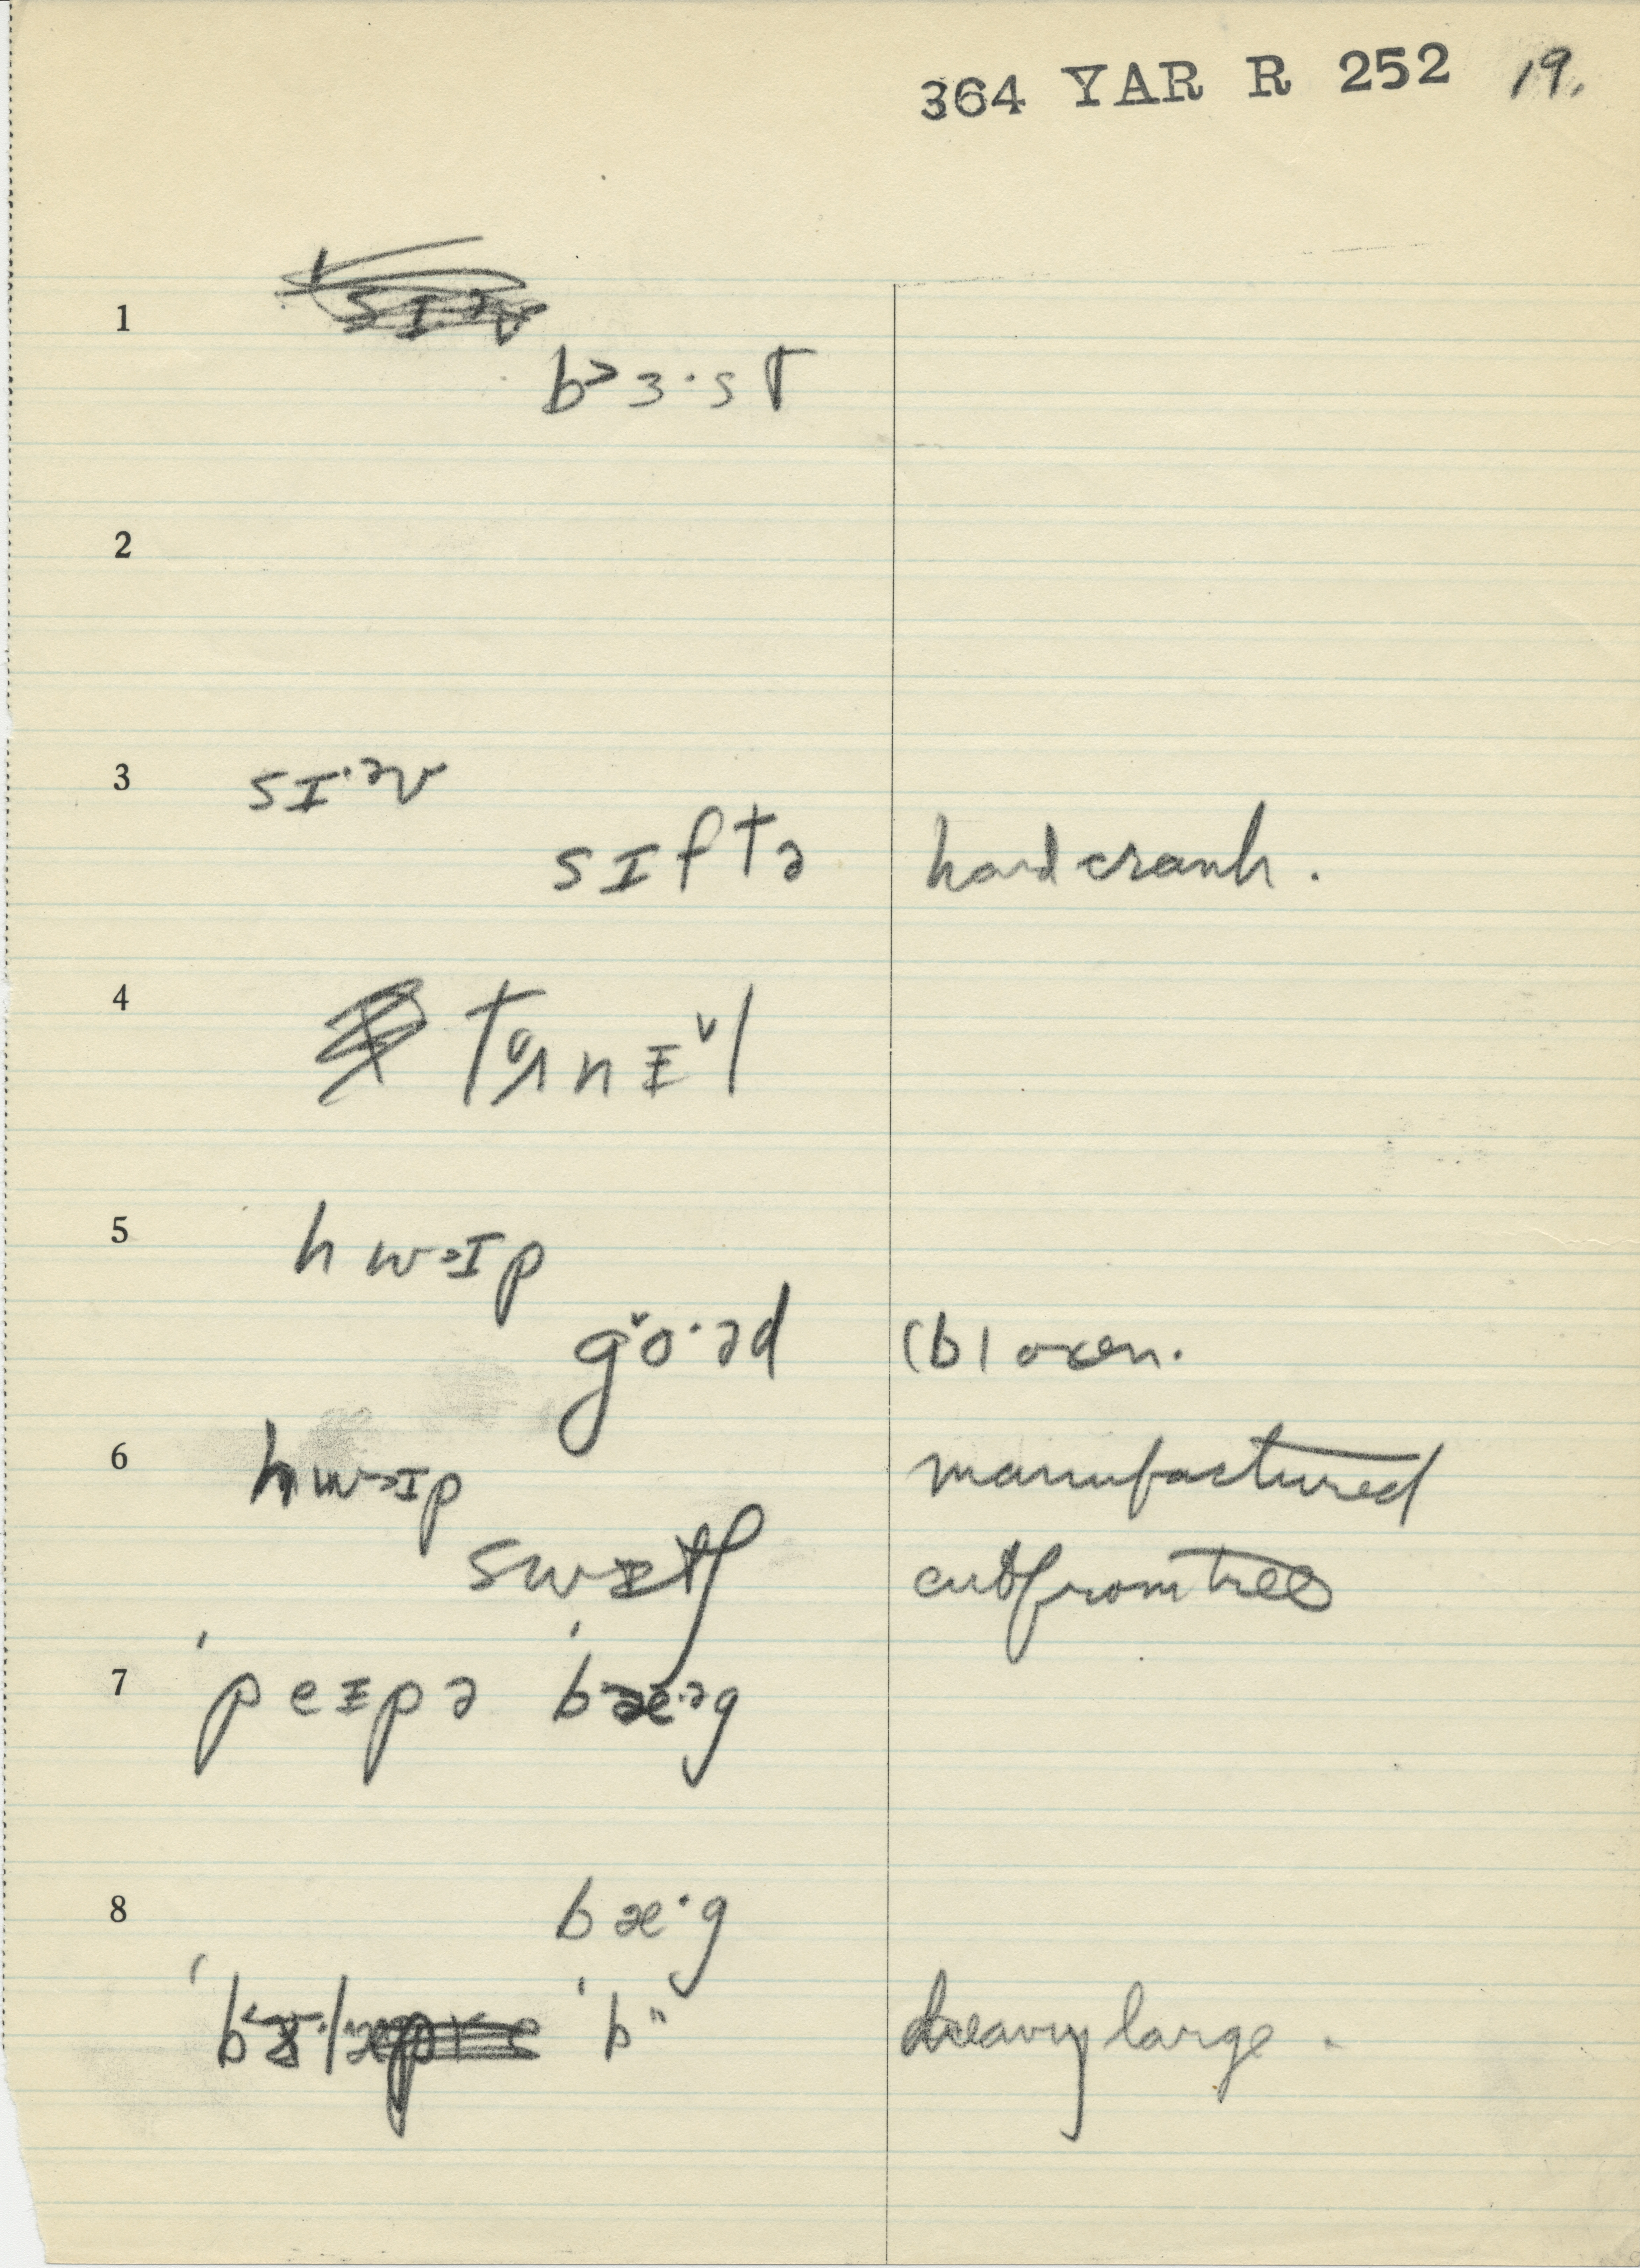 364 YAR R 252 19.
1
b>ɜ·st
2
3 sɪ·əv
sɪftə handcrank.
4 tʌnɪ̌l
5 hwəɪp
gǒ·əd (b) oxen.
6 hwəɪp manufactured
swɪtʃ cut from tree
7 'peɪpə 'bæ·əg
8 bæ·g
'b" heavy large.